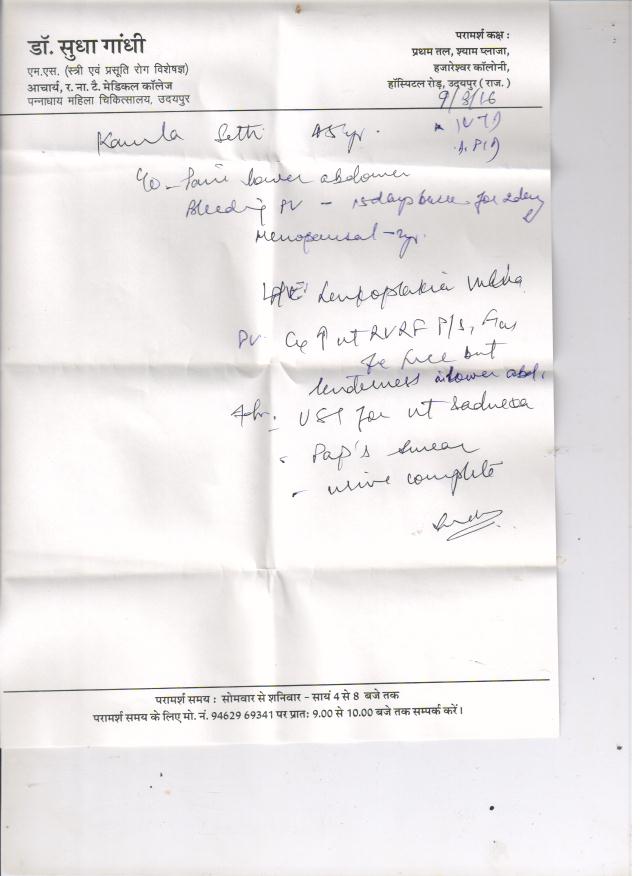 डॉ. सुधा गांधी
एम.एस. (स्त्री एवं प्रसूति रोग विशेषज्ञ)
आचार्य, र. ना. टै. मेडिकल कॉलेज
पन्नाधाय महिला चिकित्सालय, उदयपुर
परामर्श कक्ष :
प्रथम तल, श्याम प्लाजा,
हजारेश्वर कॉलोनी,
हॉस्पिटल रोड़, उदयपुर ( राज. )
9/8/16
Kamla Sethi 45yr.
C/o - Pain lower abdomen
Bleeding PV - 15 days for
Menopausal -
L/E: Leukoplakia
PV. Cx ↑ ut RVRF P/S,
free but
tenderness in lower abd.
Adv. USG for ut
- Pap's smear
- urine complete
परामर्श समय : सोमवार से शनिवार - सायं 4 से 8 बजे तक
परामर्श समय के लिए मो. नं. 94629 69341 पर प्रातः 9.00 से 10.00 बजे तक सम्पर्क करें।